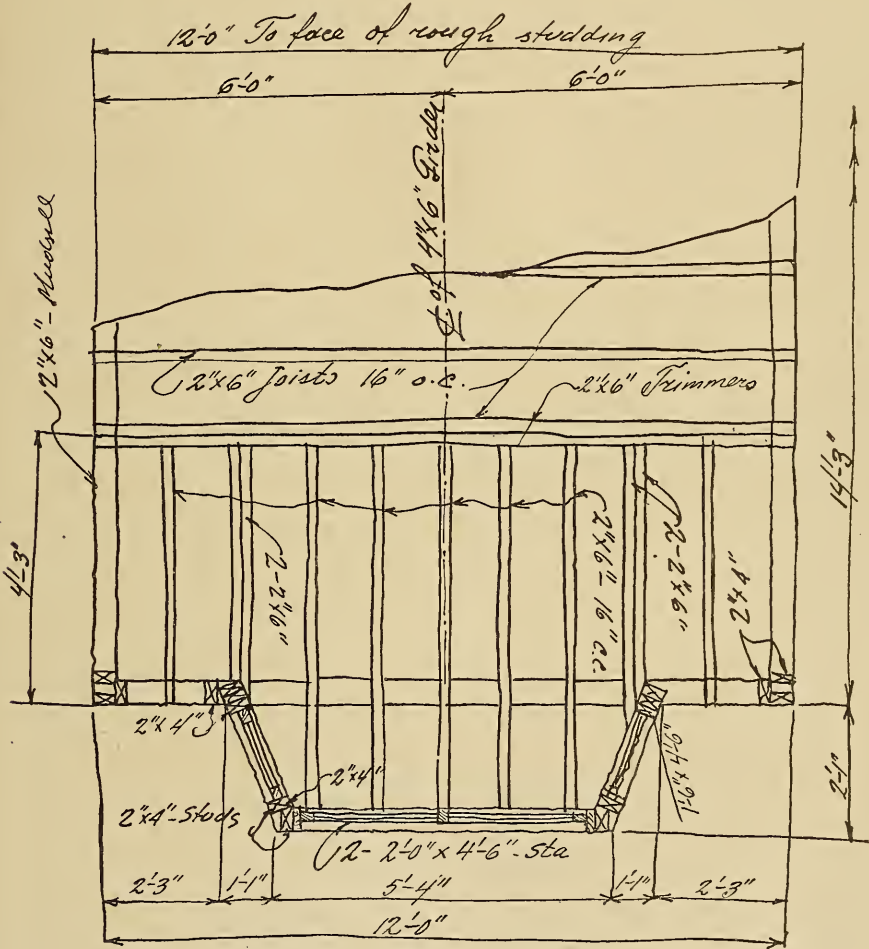 12'-0" To face of rough studding
6'-0"
6'-0"
℄ of 4"x6" Girder
2"x6" - Mudsill
2"x6" Joists 16" o.c.
2"x6" Trimmers
14'-3"
4'-3"
2-2"x6"
2"x6" - 16" o.c.
2-2"x6"
2"x4"
2"x4"
2"x4"
2"x4"-Studs
1'-6"x4'-6"
2'-1"
2- 2'-0" x 4'-6" - Sta
2'-3"
1'-1"
5'-4"
1'-1"
2'-3"
12'-0"